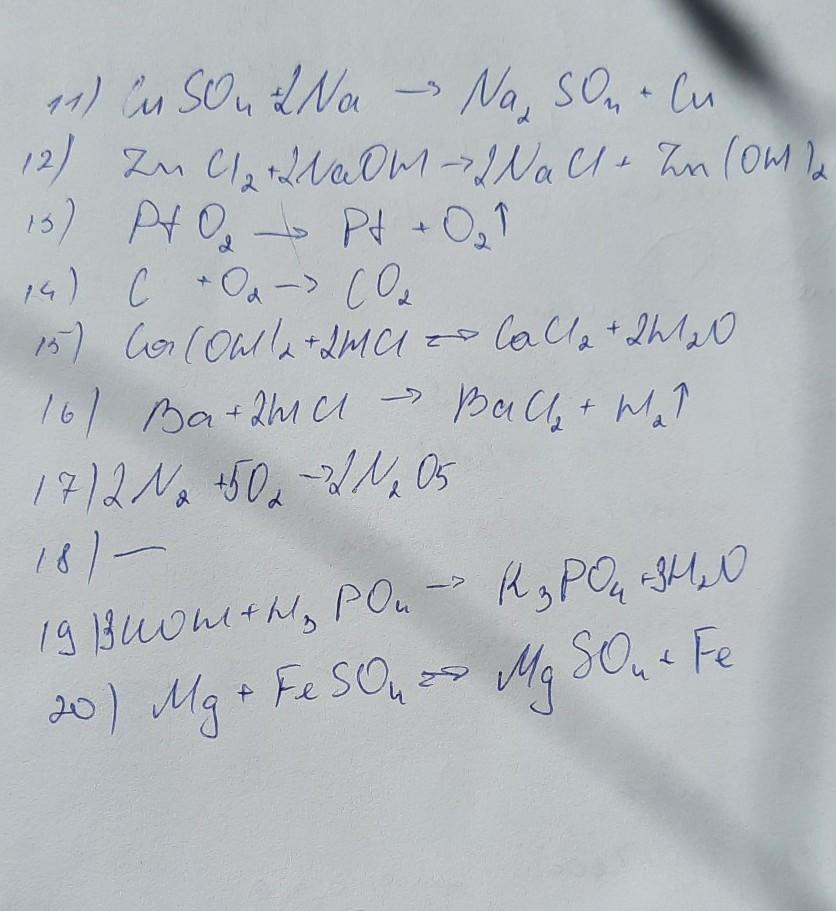 11) CuSO₄ + 2Na → Na₂SO₄ + Cu
12) ZnCl₂ + 2NaOH → 2NaCl + Zn(OH)₂
13) PtO₂ → Pt + O₂↑
14) C + O₂ → CO₂
15) Ca(OH)₂ + 2HCl ⇌ CaCl₂ + 2H₂O
16) Ba + 2HCl → BaCl₂ + H₂↑
17) 2N₂ + 5O₂ → 2N₂O5
18) —
19) 3KOH + H₃PO₄ → K₃PO₄ + 3H₂O
20) Mg + FeSO₄ ⇌ MgSO₄ + Fe